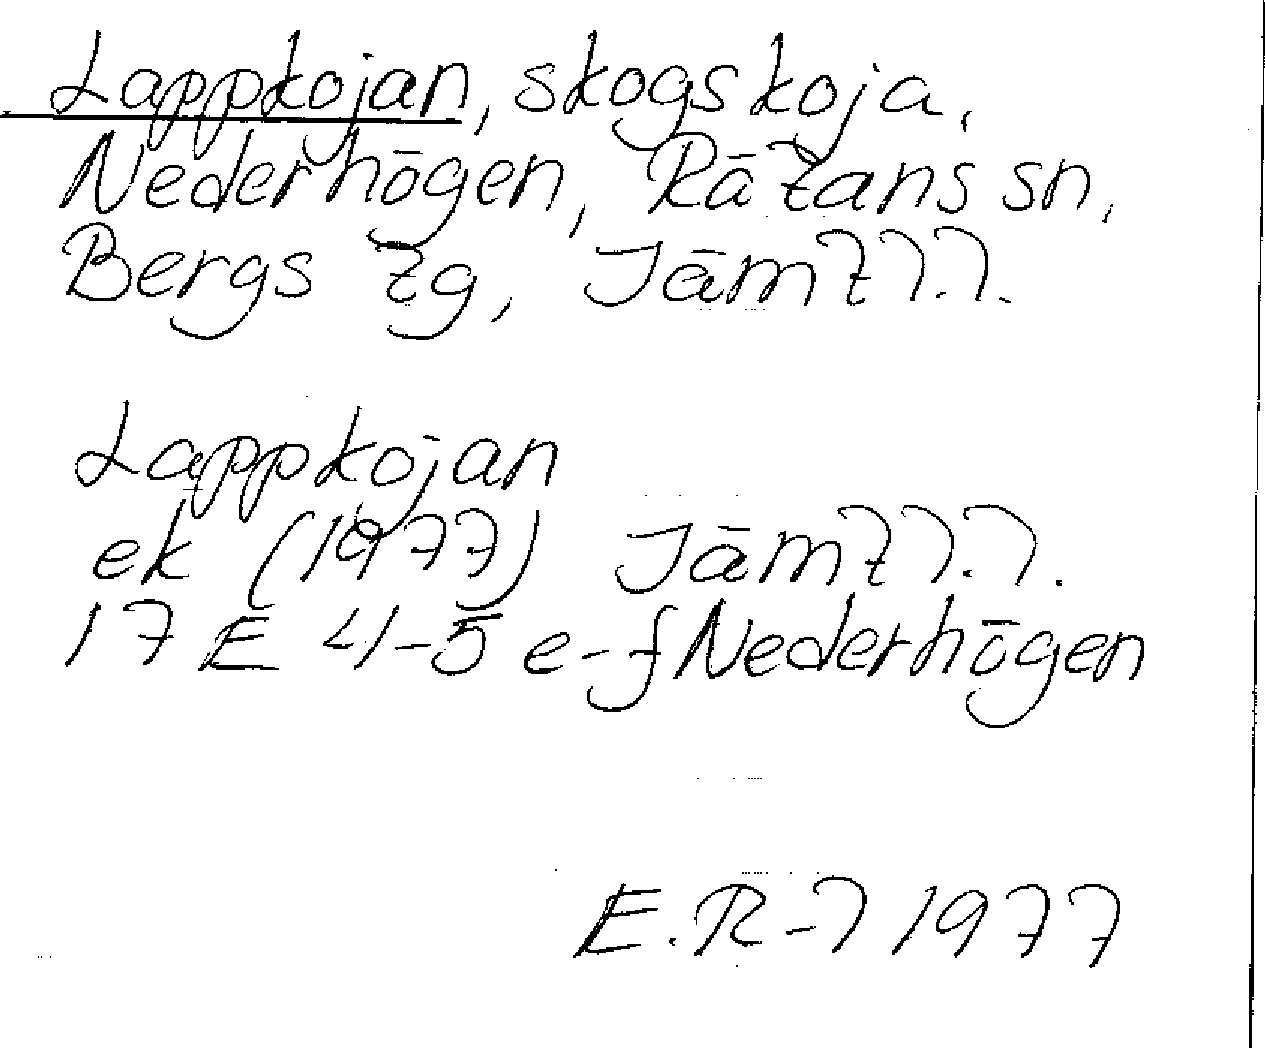 Lappkojan, skogskoja,
Nederhögen, Rätans sn,
Bergs tg, Jämtl.l.
Lappkojan
ek (1977) Jämtl.l.
17 E 4-5 e-f Nederhögen
E.R-l 1977